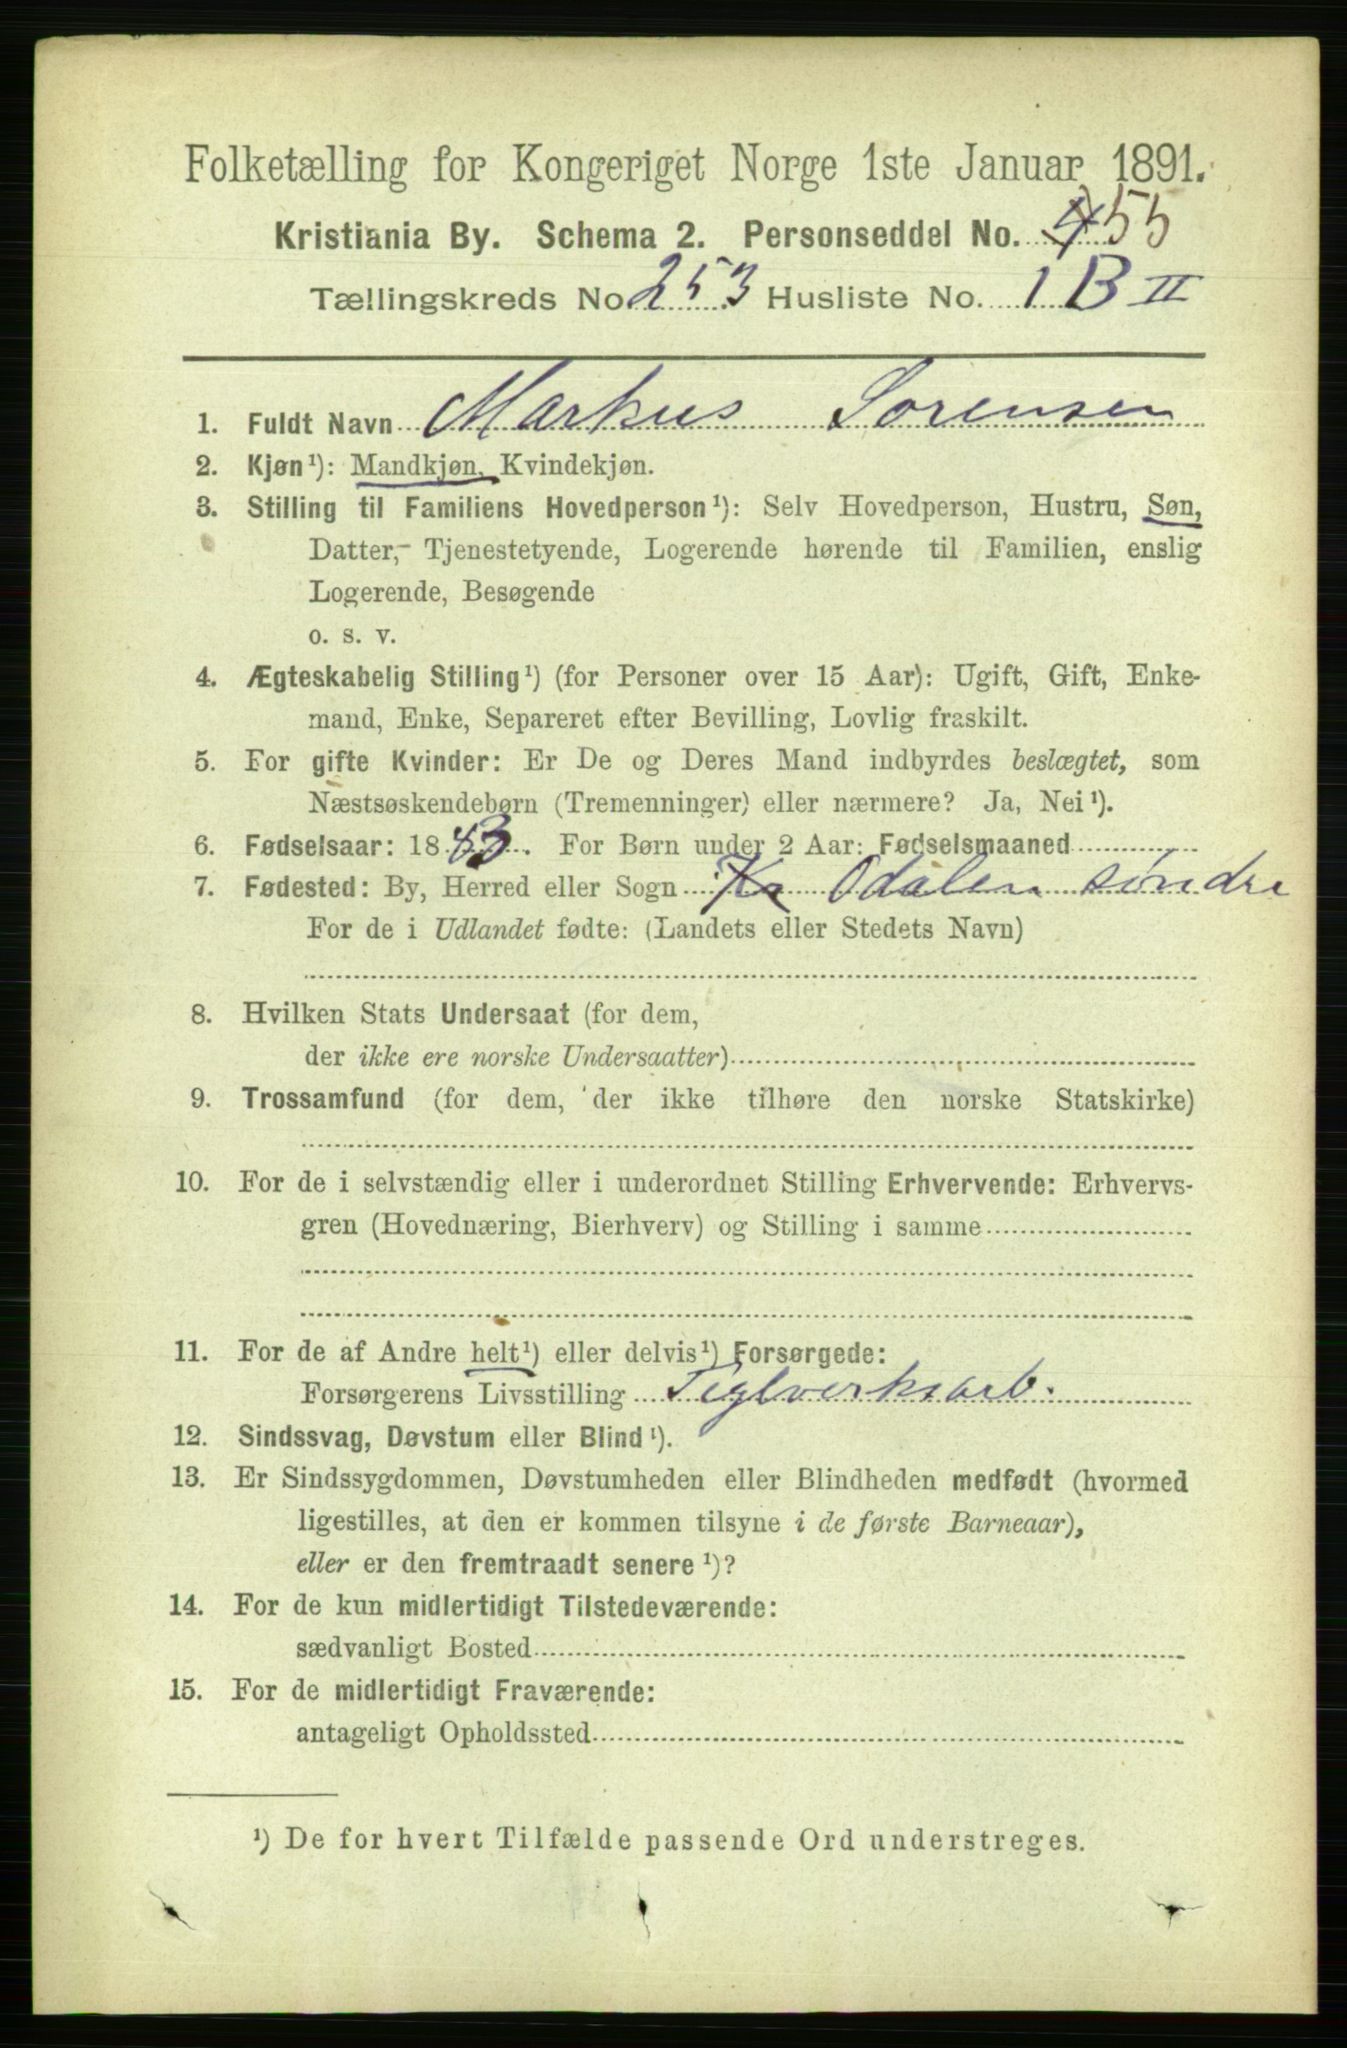 Folketælling for Kongeriget Norge 1ste Januar 1891.
Kristiania By. Schema 2. Personseddel No. 55
Tællingskreds No 253 Husliste No. 1 B II
1. Fuldt Navn Markus Sorensen
2. Kjøn¹): Mandkjøn, Kvindekjøn.
3. Stilling til Familiens Hovedperson¹): Selv Hovedperson, Hustru, Søn,
Datter, Tjenestetyende, Logerende hørende til Familien, enslig
Logerende, Besøgende
o. s. v.
4. Ægteskabelig Stilling¹) (for Personer over 15 Aar): Ugift, Gift, Enke-
mand, Enke, Separeret efter Bevilling, Lovlig fraskilt.
5. For gifte Kvinder: Er De og Deres Mand indbyrdes beslægtet, som
Næstsøskendebørn (Tremenninger) eller nærmere? Ja, Nei¹).
6. Fødselsaar: 1883. For Børn under 2 Aar: Fødselsmaaned
7. Fødested: By, Herred eller Sogn Kr Odalen søndre
For de i Udlandet fødte: (Landets eller Stedets Navn)
8. Hvilken Stats Undersaat (for dem,
der ikke ere norske Undersaatter)
9. Trossamfund (for dem, der ikke tilhøre den norske Statskirke)
10. For de i selvstændig eller i underordnet Stilling Erhvervende: Erhvervs-
gren (Hovednæring, Bierhverv) og Stilling i samme
11. For de af Andre helt¹) eller delvis¹) Forsørgede:
Forsørgerens Livsstilling Teglverksarb.
12. Sindssvag, Døvstum eller Blind¹).
13. Er Sindssygdommen, Døvstumheden eller Blindheden medfødt (hvormed
ligestilles, at den er kommen tilsyne i de første Barneaar),
eller er den fremtraadt senere¹)?
14. For de kun midlertidigt Tilstedeværende:
sædvanligt Bosted
15. For de midlertidigt Fraværende:
antageligt Opholdssted
¹) De for hvert Tilfælde passende Ord understreges.